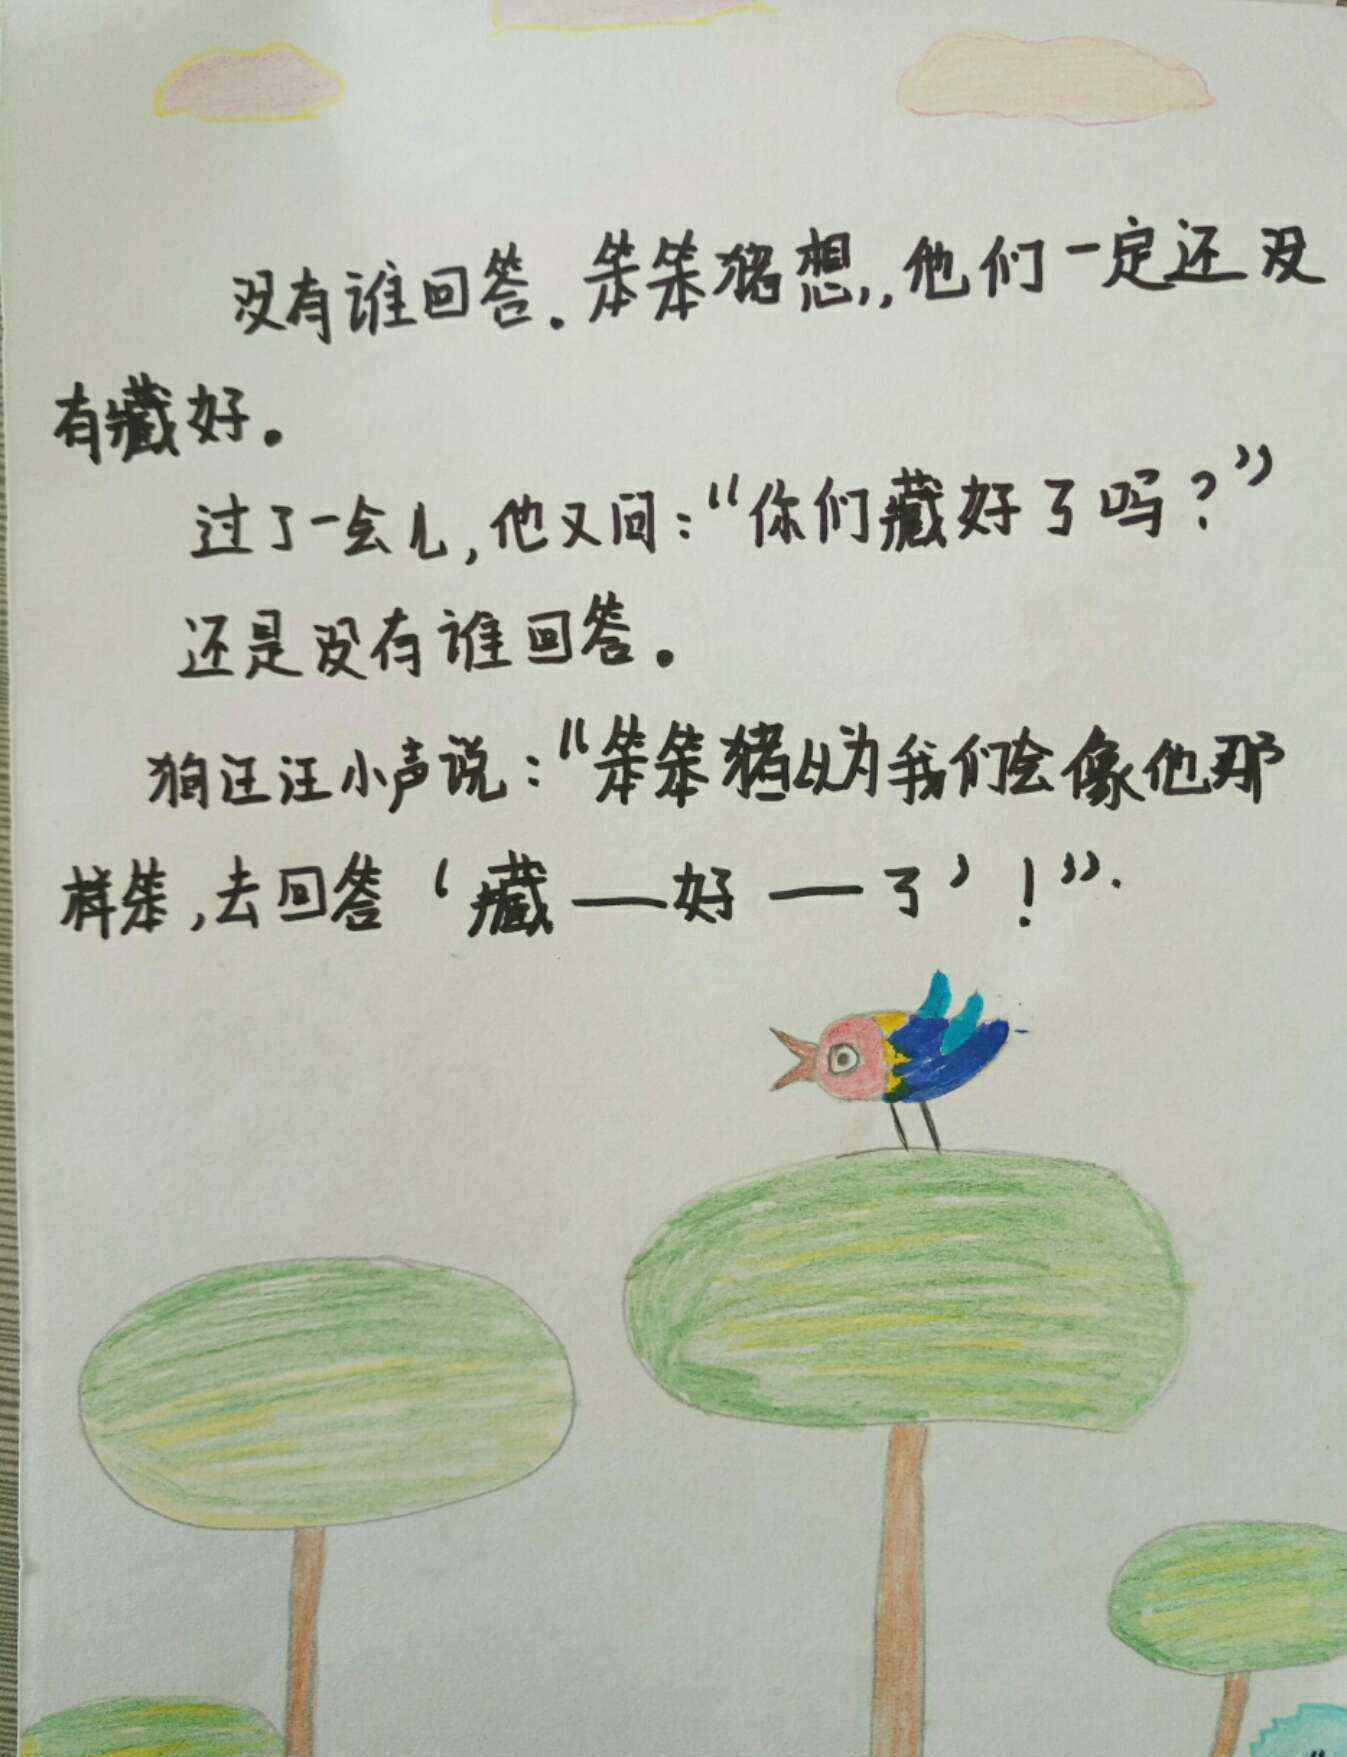 没有谁回答.笨笨猪想,,他们一定还没
有藏好。
过了一会儿,他又问:“你们藏好了吗?”
还是没有谁回答。
狗汪汪小声说:“笨笨猪以为我们会像他那
样笨,去回答‘藏——好——了’!”.